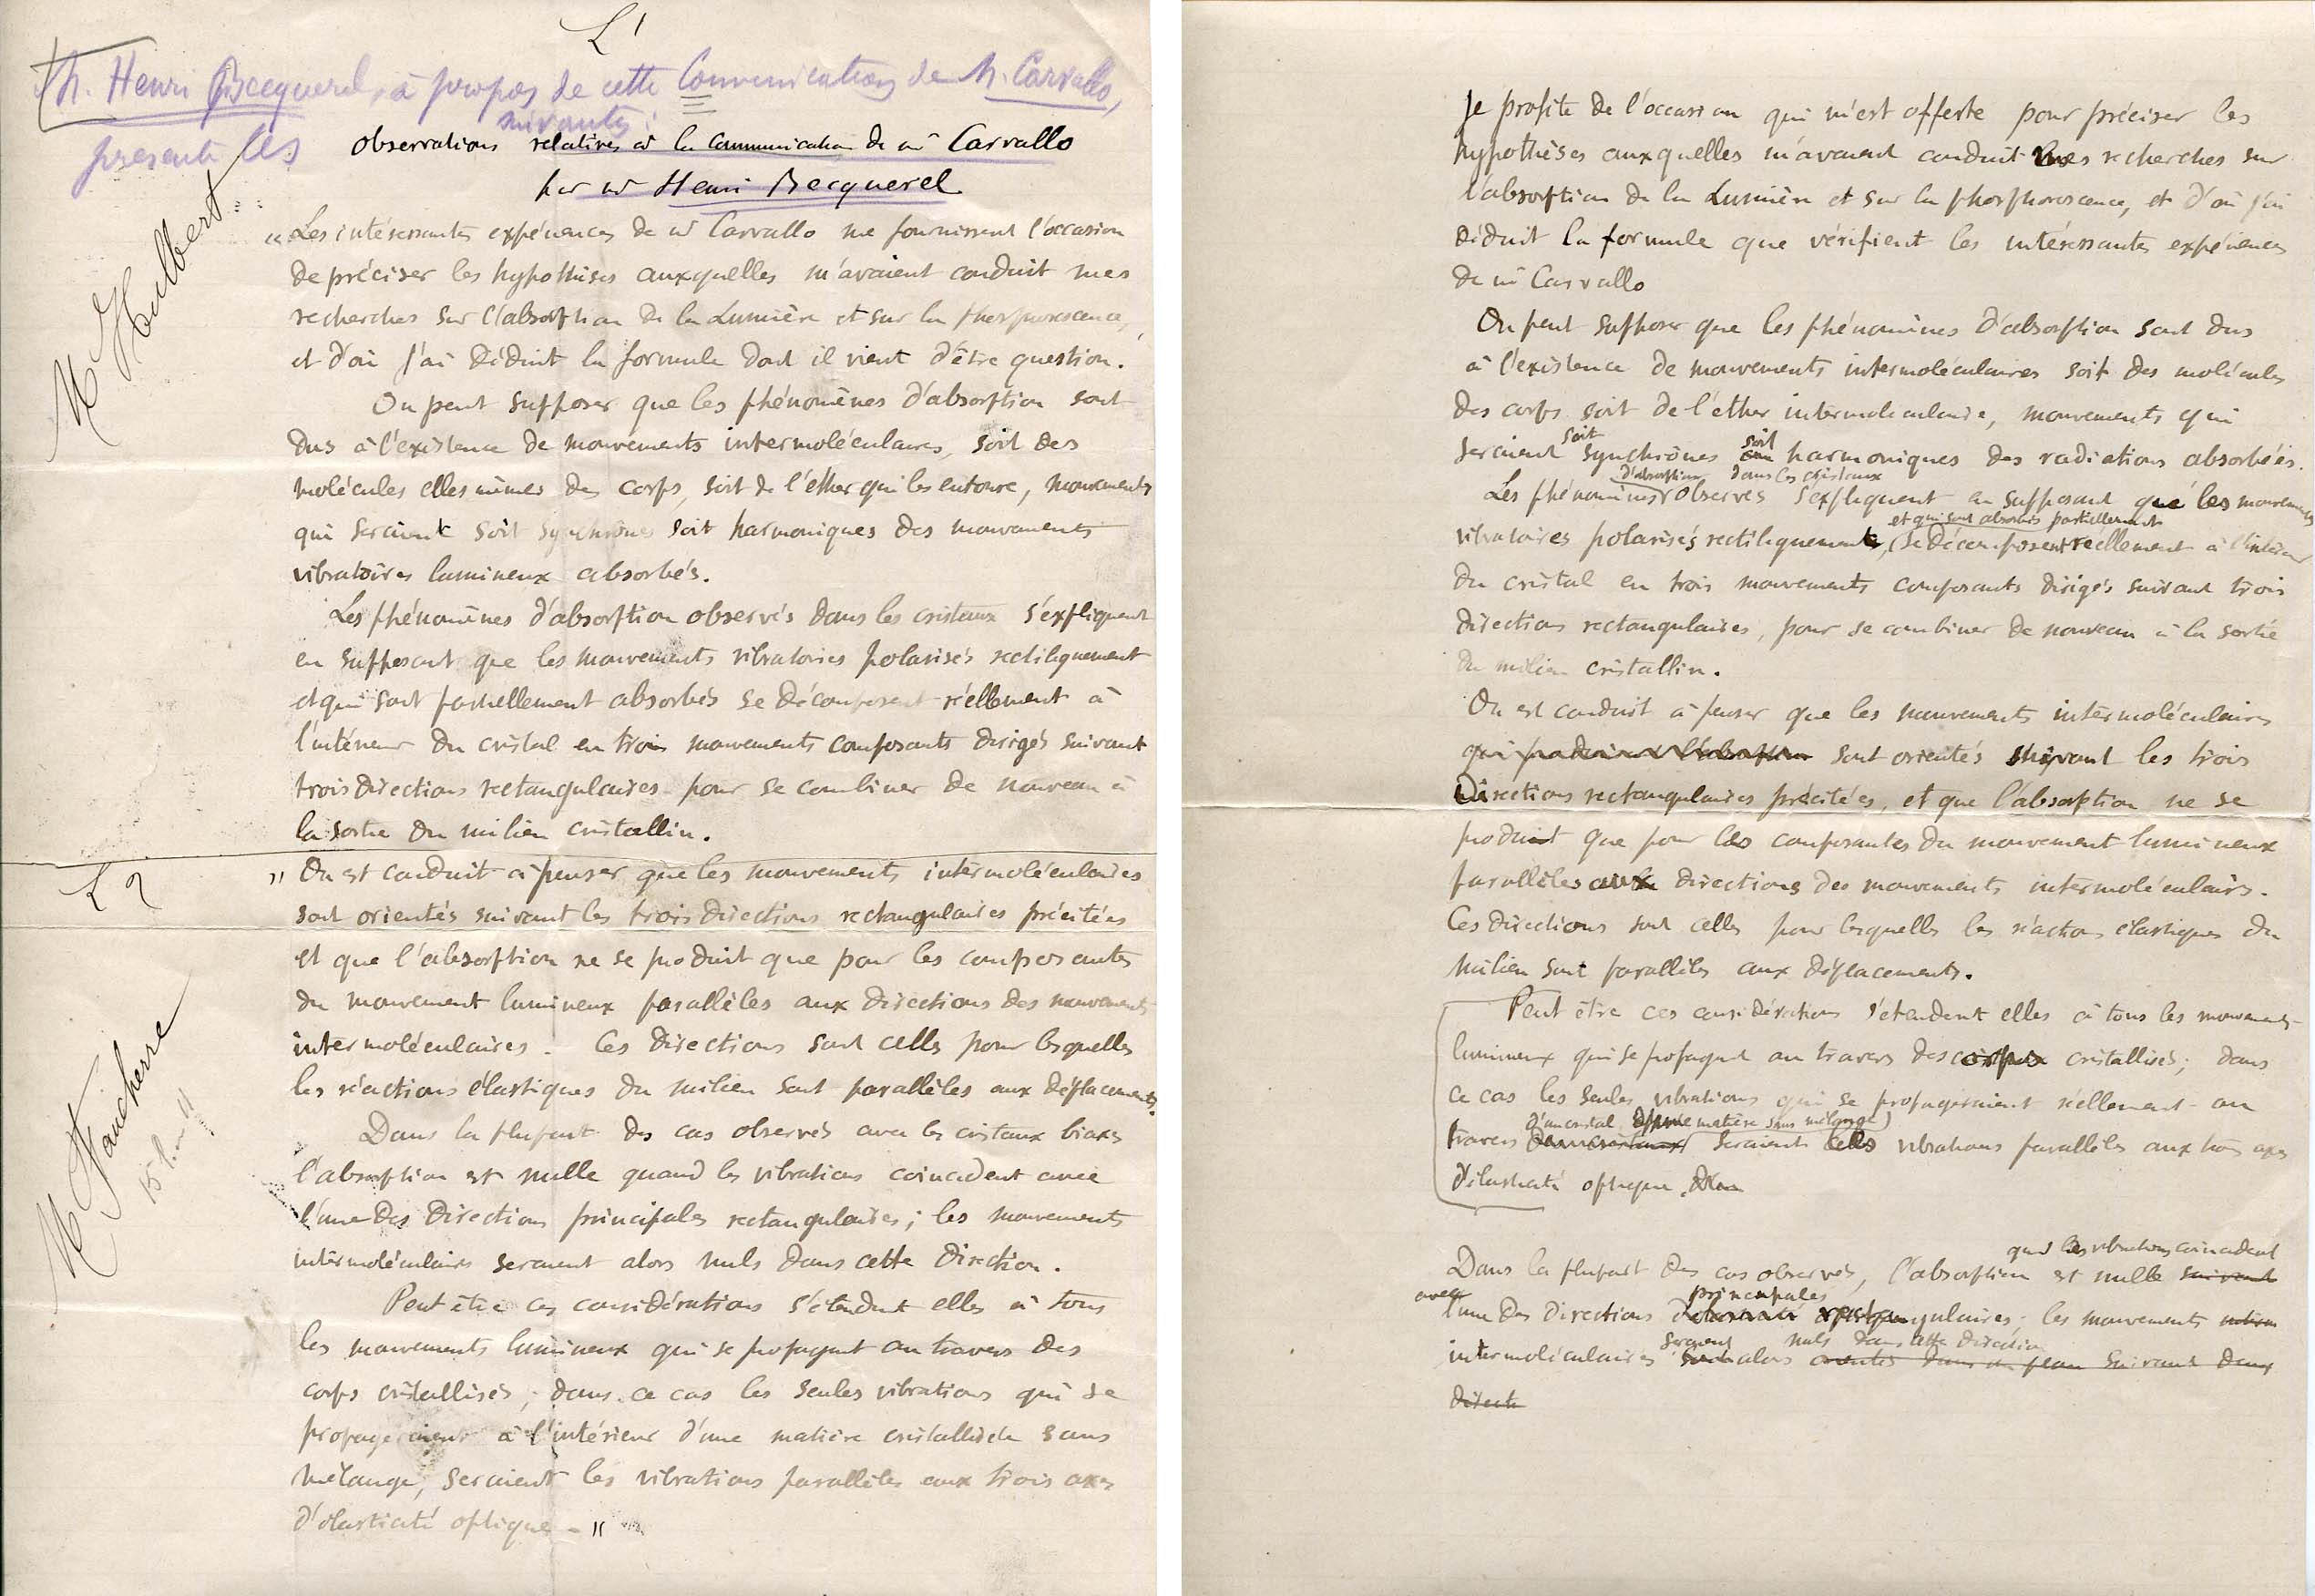 L 1
M. Henri Becquerel, à propos de cette Communication de M. Carvallo,
présente les suivantes :
Observations relatives à la Communication de mr Carvallo
par mr Henri Becquerel
M Houlbert
« Les intéressantes expériences de mr Carvallo me fournissent l'occasion
de préciser les hypothèses auxquelles m'avaient conduit mes
recherches sur l'absorption de la Lumière et sur la phosphorescence,
et d'où j'ai déduit la formule dont il vient d'être question.
On peut supposer que les phénomènes d'absorption sont
dus à l'existence de mouvements intermoléculaires, soit des
molécules elles mêmes des corps, soit de l'éther qui les entoure, mouvements
qui seraient soit synchrônes soit harmoniques des mouvements
vibratoires lumineux absorbés.
Les phénomènes d'absorption observés dans les cristaux s'expliquent
en supposant que les mouvements vibratoires polarisés rectilignement
et qui sont partiellement absorbés se décomposent réellement à
l'intérieur du cristal en trois mouvements composants dirigés suivant
trois directions rectangulaires pour se combiner de nouveau à
la sortie du milieu cristallin.
L 2
" On est conduit à penser que les mouvements intermoléculaires
sont orientés suivant les trois directions rectangulaires précitées
et que l'absorption ne se produit que pour les composantes
du mouvement lumineux parallèles aux directions des mouvements
intermoléculaires. Ces directions sont celles pour lesquelles
les réactions élastiques du milieu sont parallèles aux déplacements.
M Faucherre
Dans la plupart des cas observés avec les cristaux biaxes
l'absorption est nulle quand les vibrations coincident avec
l'une des directions principales rectangulaires ; les mouvements
intermoléculaires seraient alors nuls dans cette direction.
Peut être ces considérations s'étendent elles à tous
les mouvements lumineux qui se propagent au travers des
corps cristallisés ; dans ce cas les seules vibrations qui se
propageraient à l'intérieur d'une matière cristallisée sans
mélange, seraient les vibrations parallèles aux trois axes
d'élasticité optique. — "
Je profite de l'occasion qui m'est offerte pour préciser les
hypothèses auxquelles m'avaient conduit mes recherches sur
l'absorption de la Lumière et sur la phosphorescence, et d'où j'ai
déduit la formule que vérifient les intéressantes expériences
de mr Carvallo
On peut supposer que les phénomènes d'absorption sont dus
à l'existence de mouvements intermoléculaires soit des molécules
des corps soit de l'éther intermoléculaire, mouvements qui
seraient soit synchrônes soit harmoniques des radiations absorbées.
Les phénomènes d'absorption observés dans les cristaux s'expliquent en supposant que les mouvements
vibratoires polarisés rectilignement, et qui sont absorbés partiellement se décomposent réellement à l'intérieur
du cristal en trois mouvements composants dirigés suivant trois
directions rectangulaires, pour se combiner de nouveau à la sortie
du milieu cristallin.
On est conduit à penser que les mouvements intermoléculaires
qui produisent l'absorption sont orientés suivant les trois
directions rectangulaires précitées, et que l'absorption ne se
produit que pour les composantes du mouvement lumineux
parallèles aux directions des mouvements intermoléculaires.
Ces directions sont celles pour lesquelles les réactions élastiques du
milieu sont parallèles aux déplacements.
Peut être ces considérations s'étendent elles à tous les mouvements
lumineux qui se propagent au travers des corps cristallisés ; dans
ce cas les seules vibrations qui se propageraient réellement au
travers d'un cristal d'une matière sans mélange) seraient les vibrations parallèles aux trois axes
d'élasticité optique.
Dans la plupart des cas observés, l'absorption est nulle suivant quand les vibrations coincident
avec l'une des directions principales rectangulaires ; les mouvements
intermoléculaires seraient alors nuls dans cette direction orientés dans un plan suivant deux
directi